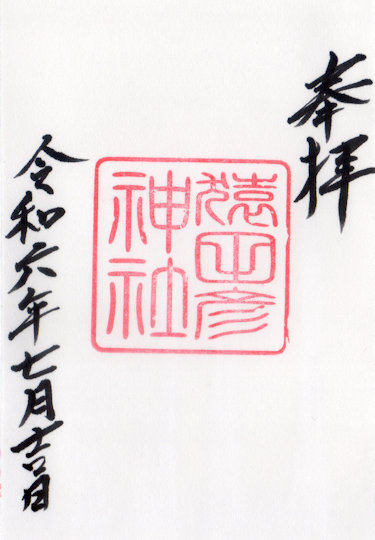 奉拝
猿田彦
神社
令和六年七月吉日